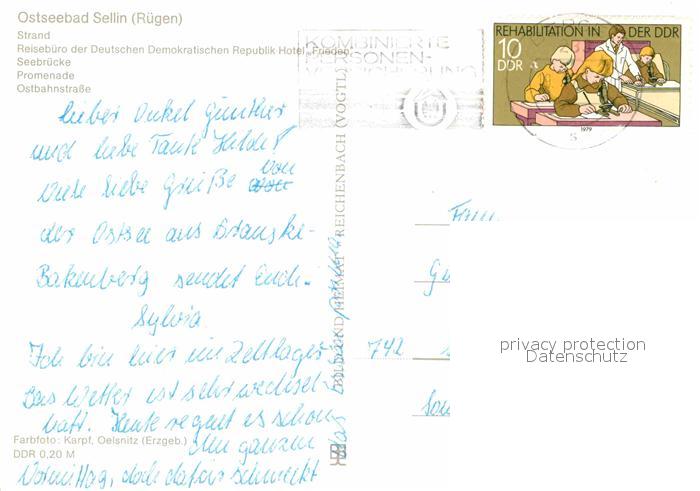 Ostseebad Sellin (Rügen)
Strand
Reisebüro der Deutschen Demokratischen Republik-Hotel „Frieden"
Seebrücke
Promenade
Ostbahnstraße
KOMBINIERTE
PERSONEN-
REHABILITATION IN DER DDR
10
DDR
1979
lieber Onkel Günther
und liebe Tante Hilde!
Viele liebe Grüße von
der Ostsee aus
Bakenberg sendet Euch
Sylvia.
Ich bin hier im Zeltlager
Das Wetter ist sehr wechsel-
haft. Heute regnet es schon
den ganzen
Vormittag, doch dafür schmeckt
das
BILD UND HEIMAT REICHENBACH (VOGTL)
Fam
742
privacy protection
Datenschutz
Farbfoto: Karpf, Oelsnitz (Erzgeb.)
DDR 0,20 M